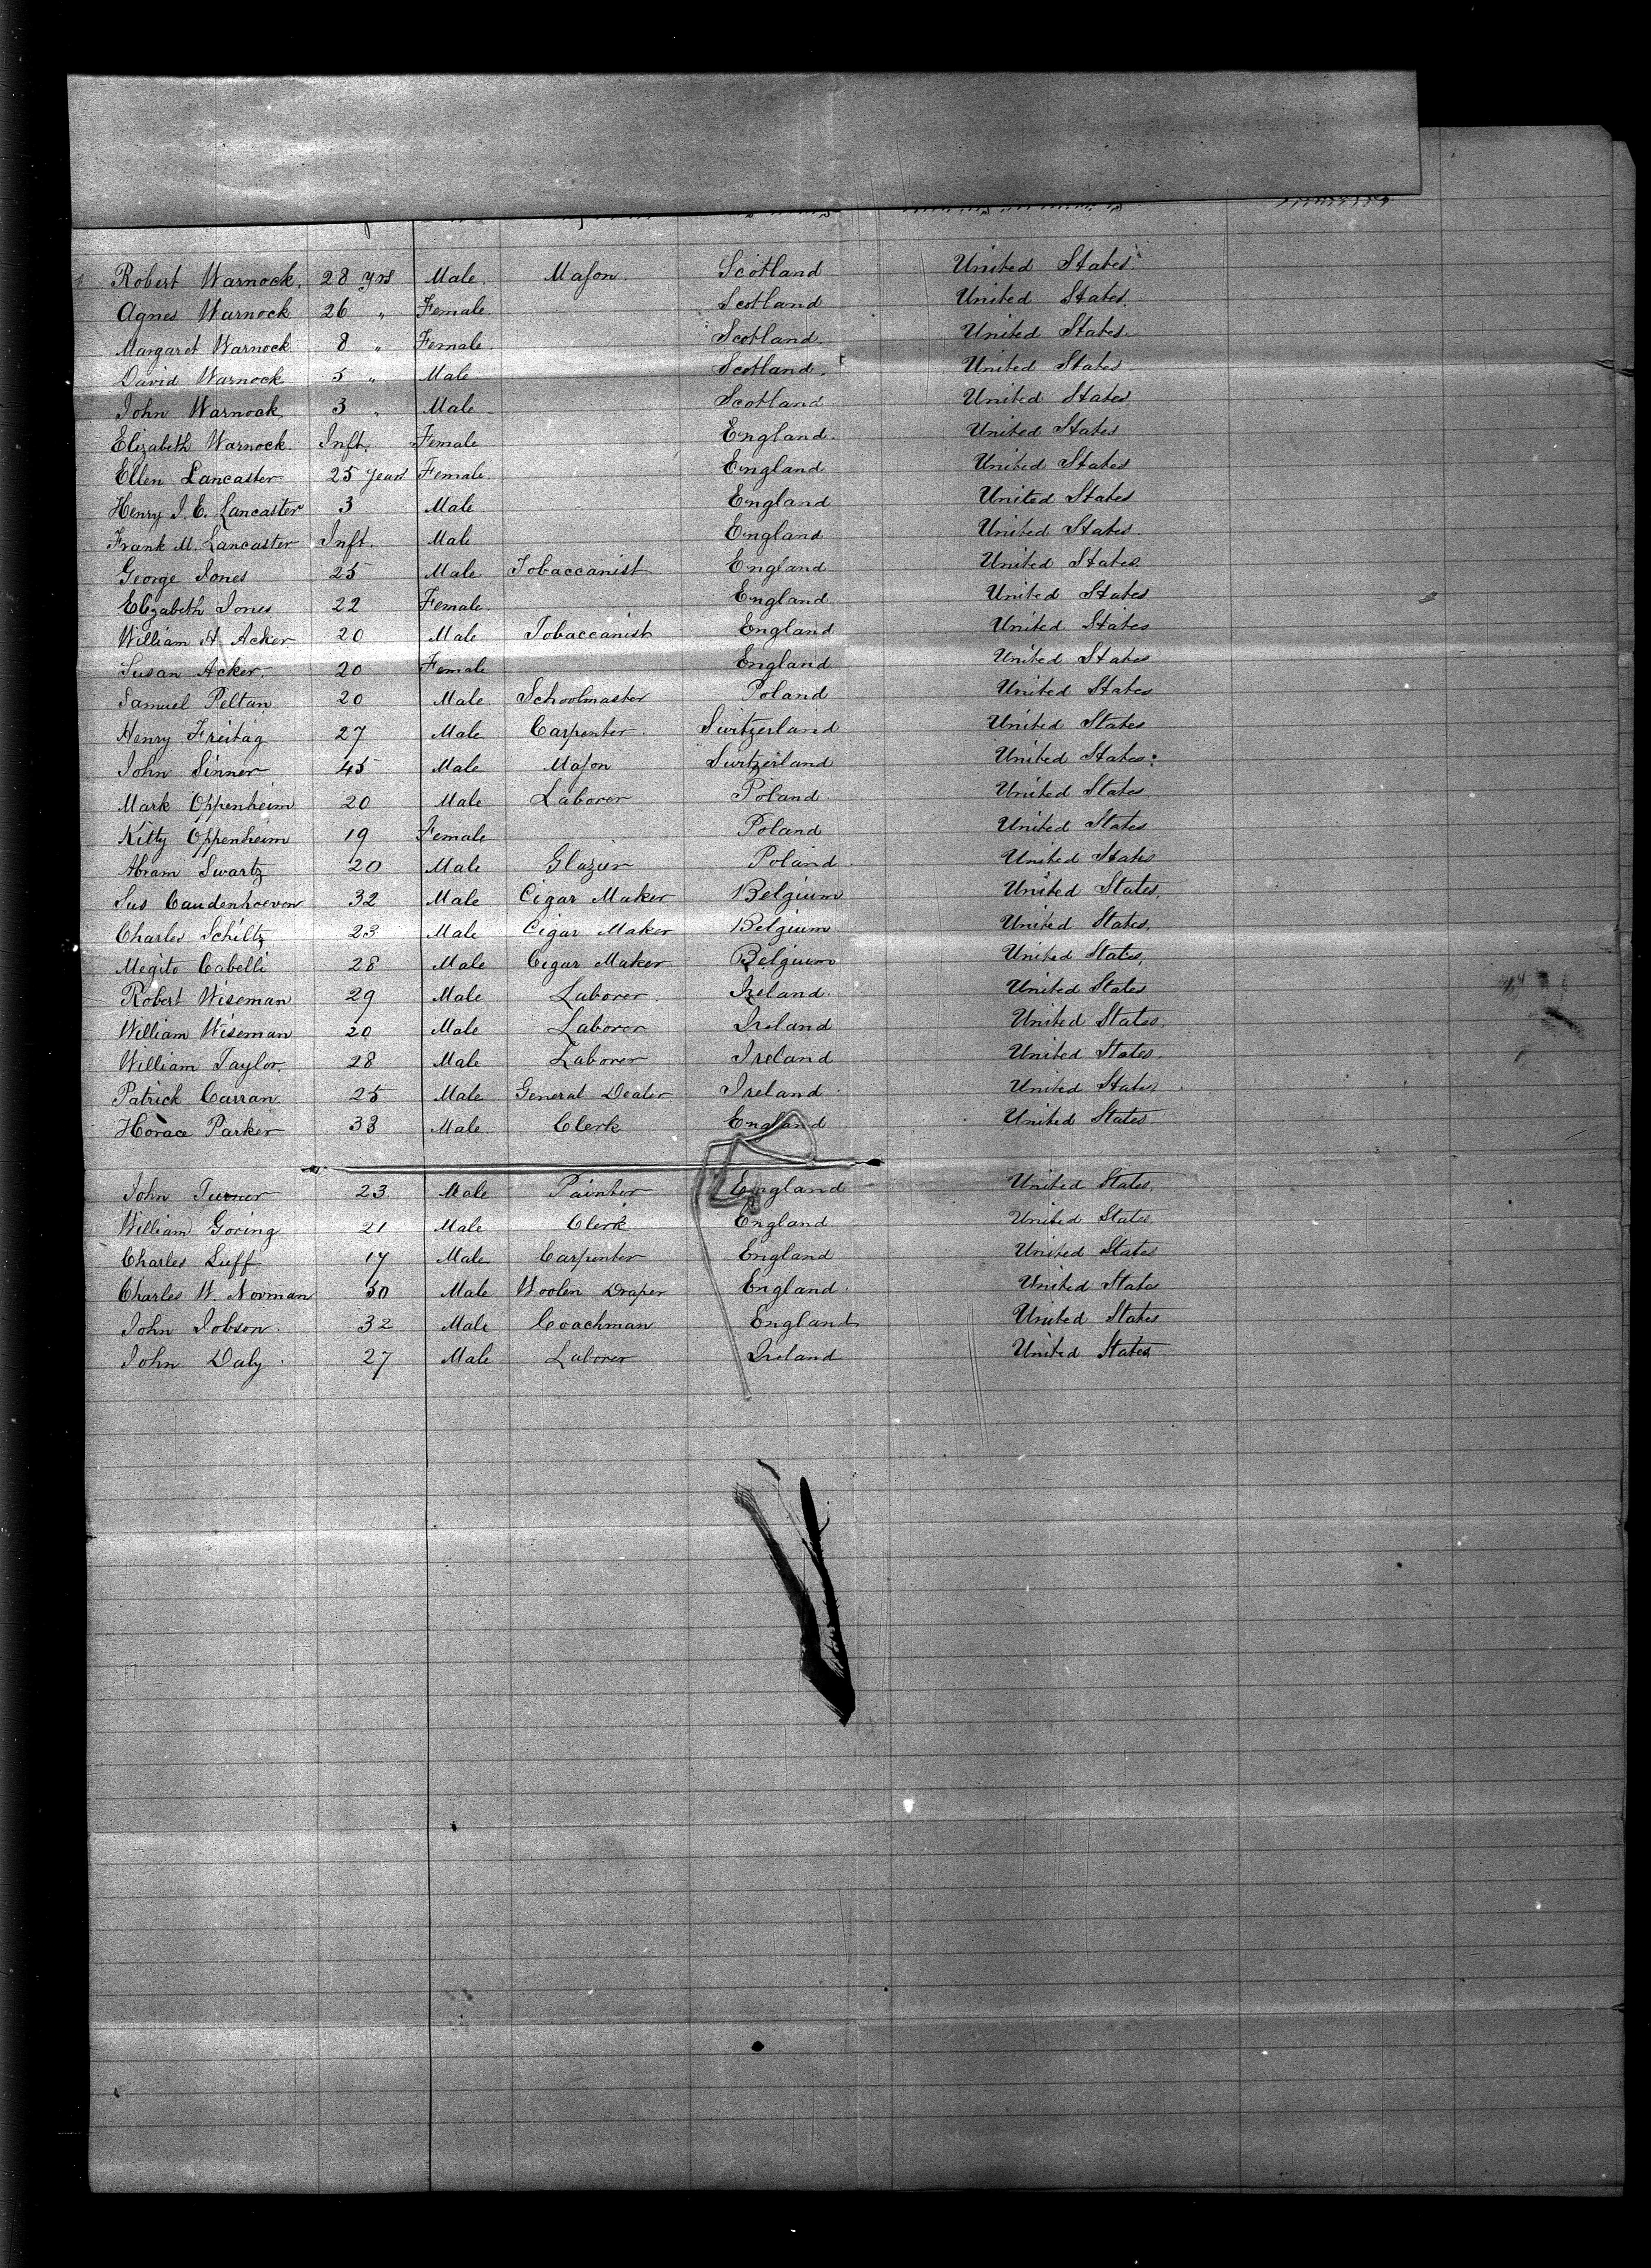 Robert Warnock. 28 yrs Male. Mason. Scotland United States.
Agnes Warnock 26 " Female. Scotland United States.
Margaret Warnock 8 " Female. Scotland. United States
David Warnock 5 " Male Scotland. United States
John Warnock 3 " Male Scotland United States
Elizabeth Warnock. Inft. Female England. United States
Ellen Lancaster 25 years Female. England United States
Henry J. E. Lancaster 3 Male England United States
Frank M. Lancaster Inft. Male England United States.
George Jones 25 Male Tobaccanist England United States
Elizabeth Jones 22 Female. England. United States
William H. Acker. 20 Male Tobaccanist England United States
Susan Acker. 20 Female England United States
Samuel Peltan 20 Male. Schoolmaster Poland United States
Henry Freitag 27 Male Carpenter. Switzerland United States
John Sinner 45 Male Mason Switzerland United States.
Mark Oppenheim 20 Male Laborer Poland United States
Kitty Oppenheim 19 Female Poland United States
Abram Swartz 20 Male Glazier Poland. United States
Sus Caudenhoeven 32 Male Cigar Maker Belgium United States.
Charles Schiltz 23 Male Cigar Maker Belgium United States.
Megito Cabelli 28 Male Cigar Maker Belgium United States.
Robert Wiseman 29 Male Laborer. Ireland. United States
William Wiseman 20 Male Laborer Ireland United States.
William Taylor. 28 Male Laborer Ireland United States.
Patrick Curran. 25 Male General Dealer Ireland United States.
Horace Parker 33 Male Clerk England United States.
John Turner 23 Male Painter England United States.
William Goring 21 Male Clerk England United States.
Charles Luff 17 Male Carpenter England United States
Charles W. Norman 30 Male Woolen Draper England. United States
John Jobson. 32 Male Coachman England United States
John Daly. 27 Male Laborer Ireland United States